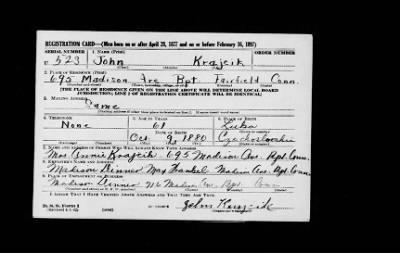 REGISTRATION CARD—(Men born on or after April 28, 1877 and on or before February 16, 1897)
SERIAL NUMBER 1. NAME (Print)
U 523 John Krajcik
2. PLACE OF RESIDENCE (Print)
695 Madison Ave Bpt. Fairfield Conn.
[THE PLACE OF RESIDENCE GIVEN ON THE LINE ABOVE WILL DETERMINE LOCAL BOARD
JURISDICTION; LINE 2 OF REGISTRATION CERTIFICATE WILL BE IDENTICAL]
3. MAILING ADDRESS
Same
4. TELEPHONE 5. AGE IN YEARS 6. PLACE OF BIRTH
None 61
DATE OF BIRTH
Oct 9 1880
7. NAME AND ADDRESS OF PERSON WHO WILL ALWAYS KNOW YOUR ADDRESS
Mrs Annie Krajcik 695 Madison Ave. Bpt. Conn.
8. EMPLOYER'S NAME AND ADDRESS
Madison Ave. Bpt. Conn
9. PLACE OF EMPLOYMENT OR BUSINESS
Madison Ave. Bpt Conn
I AFFIRM THAT I HAVE VERIFIED ABOVE ANSWERS AND THAT THEY ARE TRUE.
D. S. S. Form 1
John